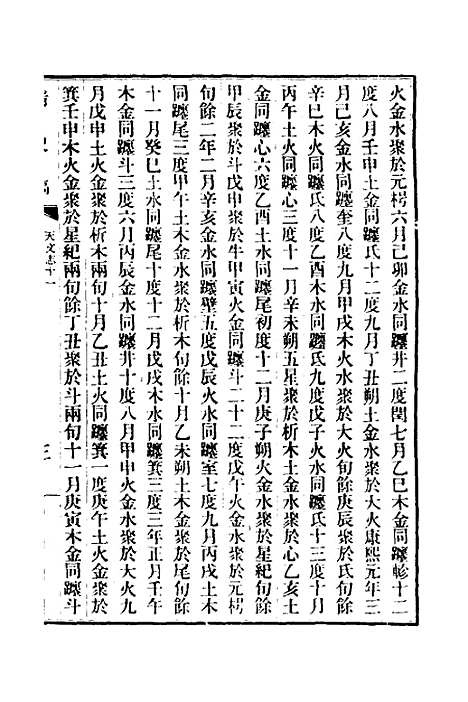 火金水聚於元枵六月己卯金水同躔井二度閏七月乙巳木金同躔軫十二
度八月壬申土金同躔氐十二度九月丁丑朔土金水聚於大火康熙元年三
月己亥金水同躔奎八度九月甲戌木火水聚於大火旬餘庚辰聚於氐旬餘
辛巳木火同躔氐八度乙酉木水同躔氐九度戊子火水同躔氐十三度十月
丙午土火同躔心三度十一月辛未朔五星聚於析木土金水聚於心乙亥土
金同躔心六度乙酉土水同躔尾初度十二月庚子朔火金水聚於星紀旬餘
甲辰聚於斗戊申聚於牛甲寅火金同躔斗二十二度戊午火金水聚於元枵
旬餘二年二月辛亥金水同躔壁五度戊辰火水同躔室七度九月丙戌土木
同躔尾三度甲午土木金水聚於析木旬餘十月乙未朔土木金水聚於尾旬餘
十一月癸巳土水同躔尾十度十二月戊戌木水同躔箕三度三年正月壬午
木金同躔斗三度六月丙辰金水同躔井十度八月甲申火金水聚於大火九
月戊申土火金水聚於析木兩旬十月乙丑土火同躔箕一度庚午土火金聚於
箕壬申木火金聚於星紀兩旬餘丁丑聚於斗兩旬十一月庚寅木金同躔斗
天文志十一
三